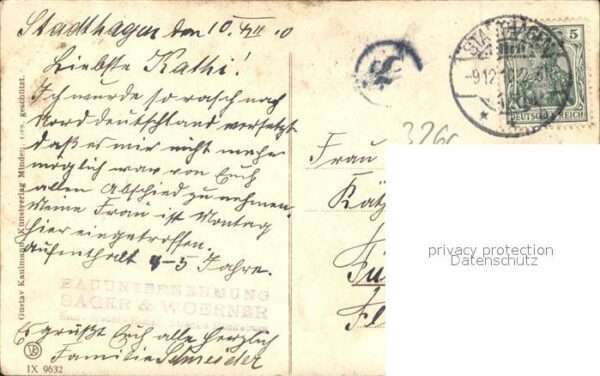 Stadthagen den 10. XII 10
Liebste Kathi!
Ich wurde so rasch nach
Norddeutschland versetzt
daß es mir nicht mehr
möglich war von Euch
allen Abschied zu nehmen.
Meine Frau ist Montag
hier eingetroffen.
Aufenthalt 4-5 Jahre.
BAUUNTERNEHMUNG
SAGER & WOERNER
Es grüßt Euch alle herzlich
Familie Schneider
Gustav Kaulmann, Kunstverlag Minden. Ges. geschützt.
IX 9632
STADTHAGEN
9.12.10
5
DEUTSCHES REICH
326
Frau
Kätz
Fü
privacy protection
Datenschutz